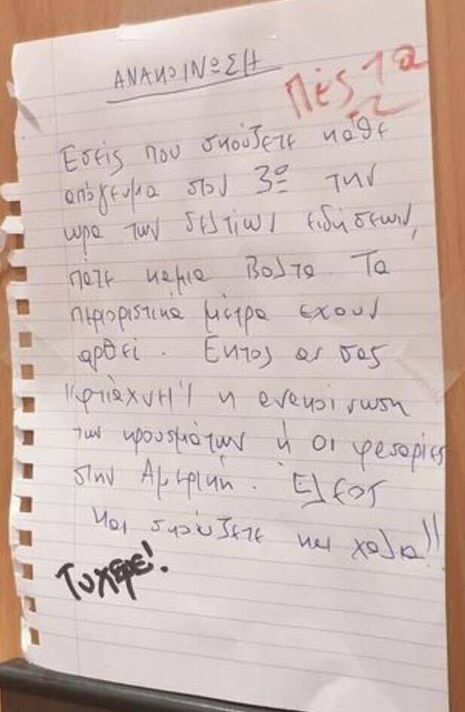 ΑΝΑΚΟΙΝΩΣΗ
Πές τα
Εσείς που σκούζετε κάθε
απόγευμα στον 3ο την
ωρα των δελτίων ειδήσεων,
πάτε καμια βόλτα. Τα
περιοριστικά μέτρα εχουν
αρθεί. Εκτος αν σας
"φτιάχνει" η ανακοίνωση
των κρουσμάτων ή οι φασαρίες
στην Αμερική. Έλεος
και σκούζετε και χάλια!!
Τυχερε!